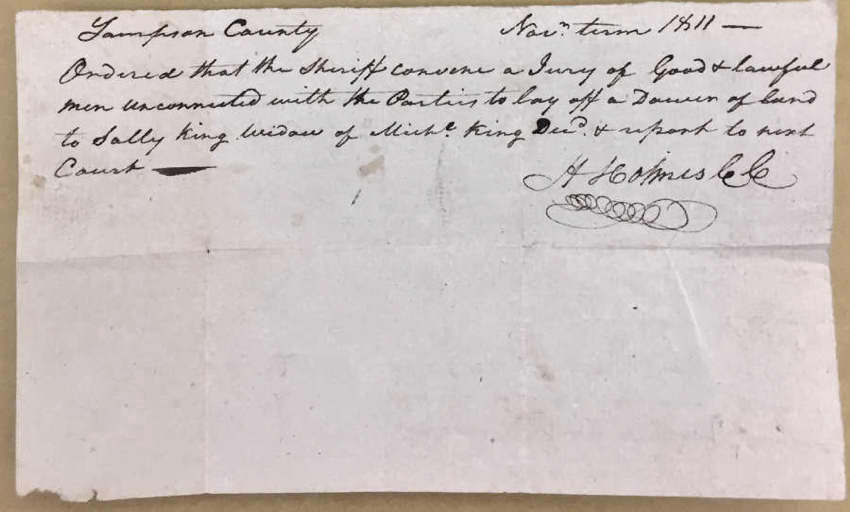 Sampson County Novr. term 1811 —
Ordered that the Sheriff convene a Jury of Good & lawful
men unconnected with the Parties to lay off a Dower of land
to Sally King Widow of Miche. King Decd. & report to next
Court —
H Holmes CC